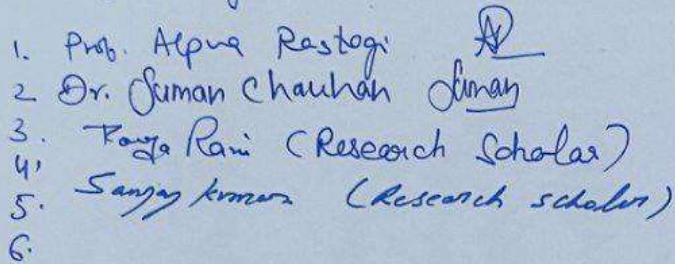 1. Prof. Alpna Rastogi
2 Dr. Suman Chauhan Suman
3. Rani (Research Scholar)
4.
5. Sanjay Kumar (Research scholar)
6.